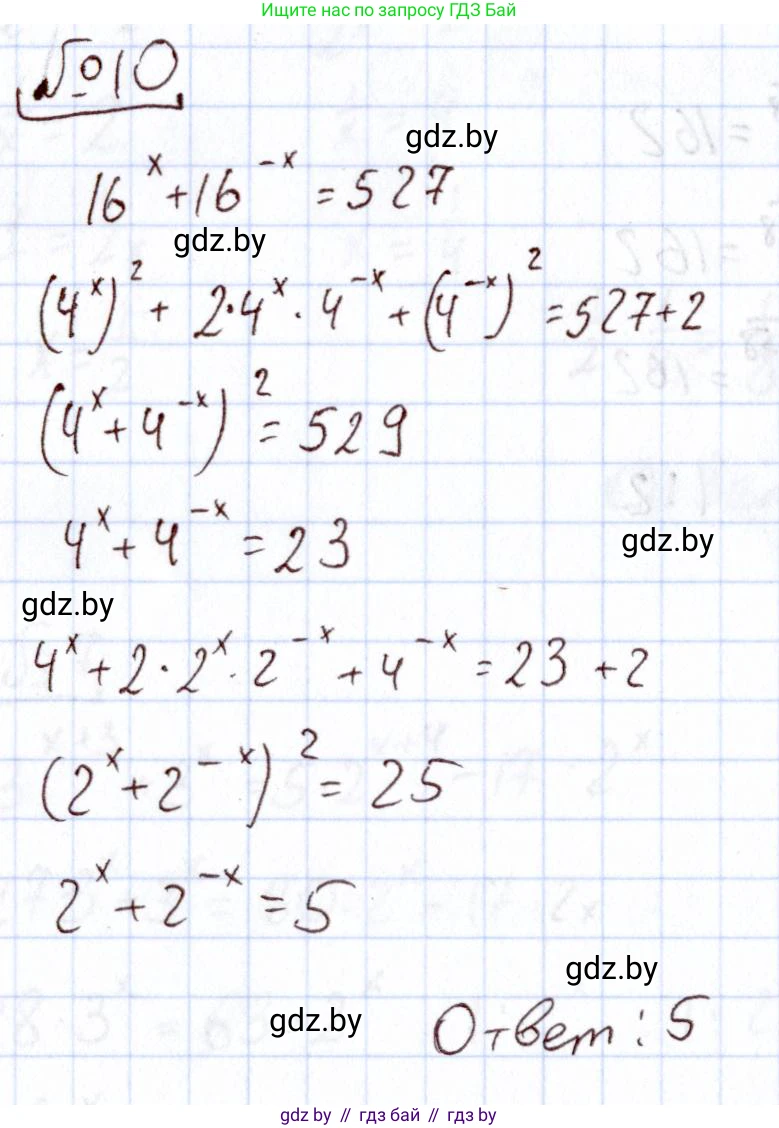 Ищите нас по запросу ГДЗ Бай
№10
gdz.by
16^x + 16^{-x} = 527
gdz.by
(4^x)^2 + 2·4^x·4^{-x} + (4^{-x})^2 = 527+2
(4^x + 4^{-x})^2 = 529
4^x + 4^{-x} = 23
gdz.by
gdz.by
4^x + 2·2^x·2^{-x} + 4^{-x} = 23 + 2
(2^x + 2^{-x})^2 = 25
2^x + 2^{-x} = 5
gdz.by
gdz.by
Ответ: 5
gdz by // гдз бай // gdz by